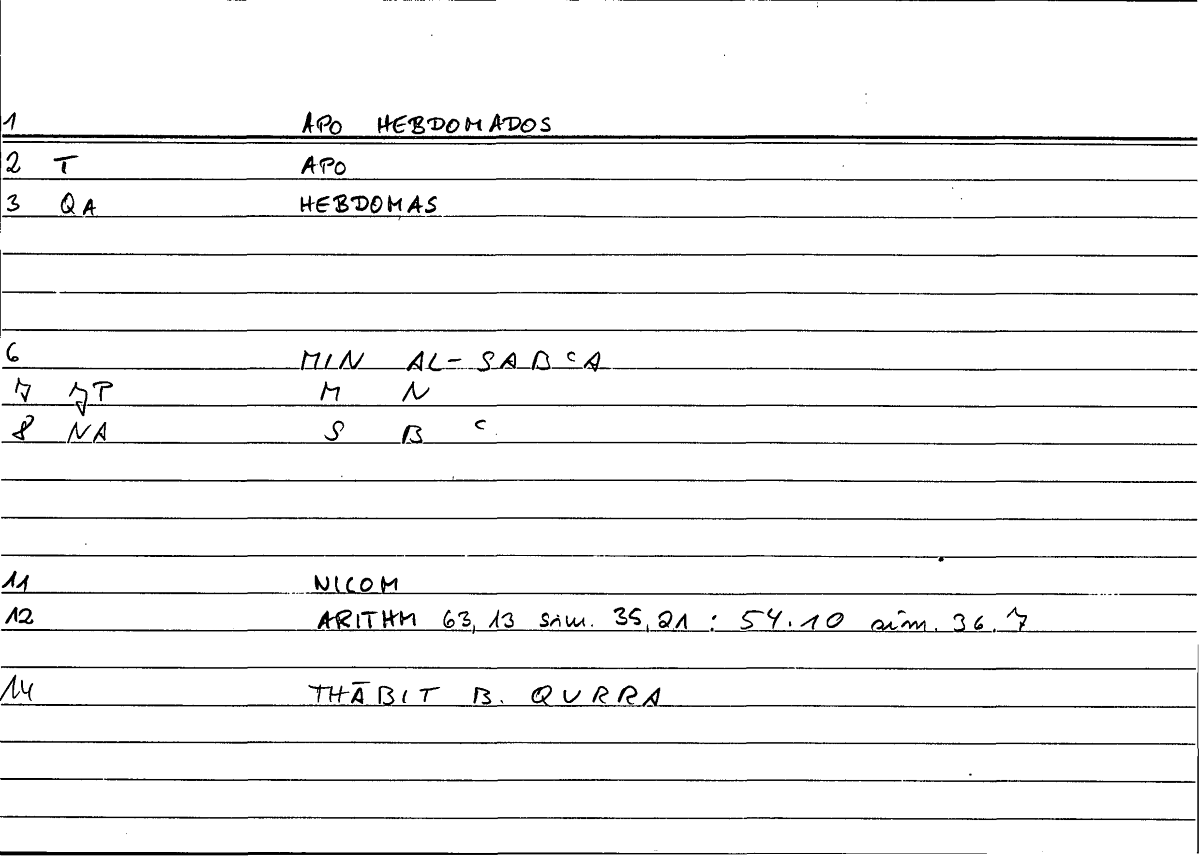 1 APO HEBDOMADOS
2 T APO
3 QA HEBDOMAS
6 MIN AL-SABCA
7 JP M N
8 NA S B C
11 NICOM
12 ARITHM 63,13 sim. 35,21 : 54.10 sim. 36.7
14 THĀBIT B. QURRA